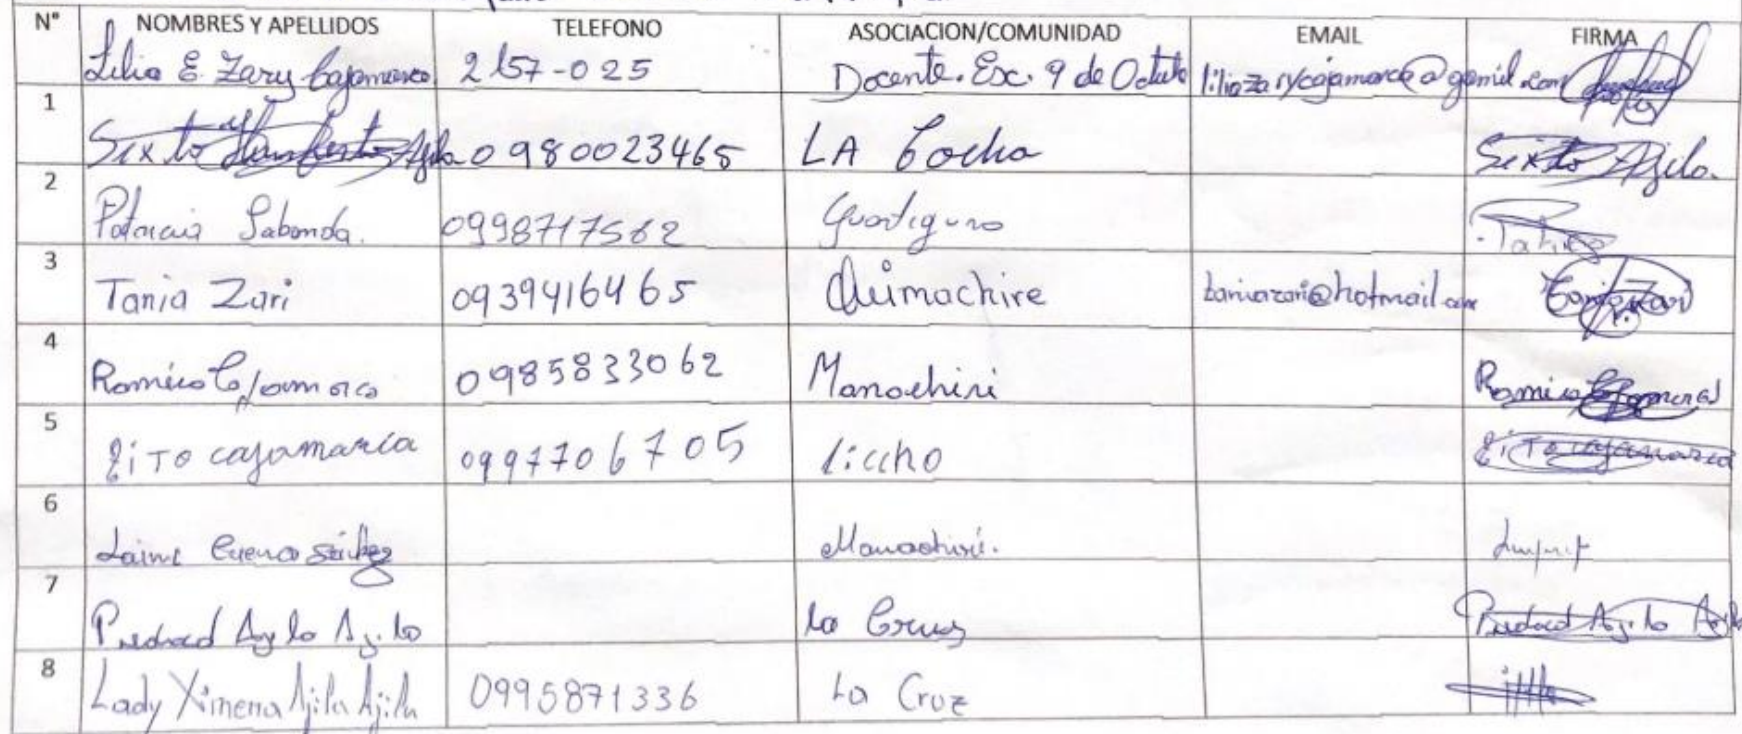 N° NOMBRES Y APELLIDOS TELEFONO ASOCIACION/COMUNIDAD EMAIL FIRMA
Lilia E. Zary Cajamarca 2157-025 Docente. Esc. 9 de Octubre liliazarycajamarca@gmail.com
1 Sixto Humberto Ajila 0980023465 LA Cocha Sixto Ajila.
2 Patricia Sabanda. 0998717562 Guadiguro
3 Tania Zari 0939416465 Quimachire taniazari@hotmail.com Tania Zari
4 Ramiro Cajamarca 0985833062 Manachiri Ramiro Cajamarca
5 ZiTO cajamarca 0997706705 liccho ZiTO cajamarca
6 Jaime Cuenca Manachiri.
7 Piedad Ajila Ajila la Cruz Piedad Ajila Ajila
8 Lady Ximena Ajila Ajila 0995871336 La Cruz